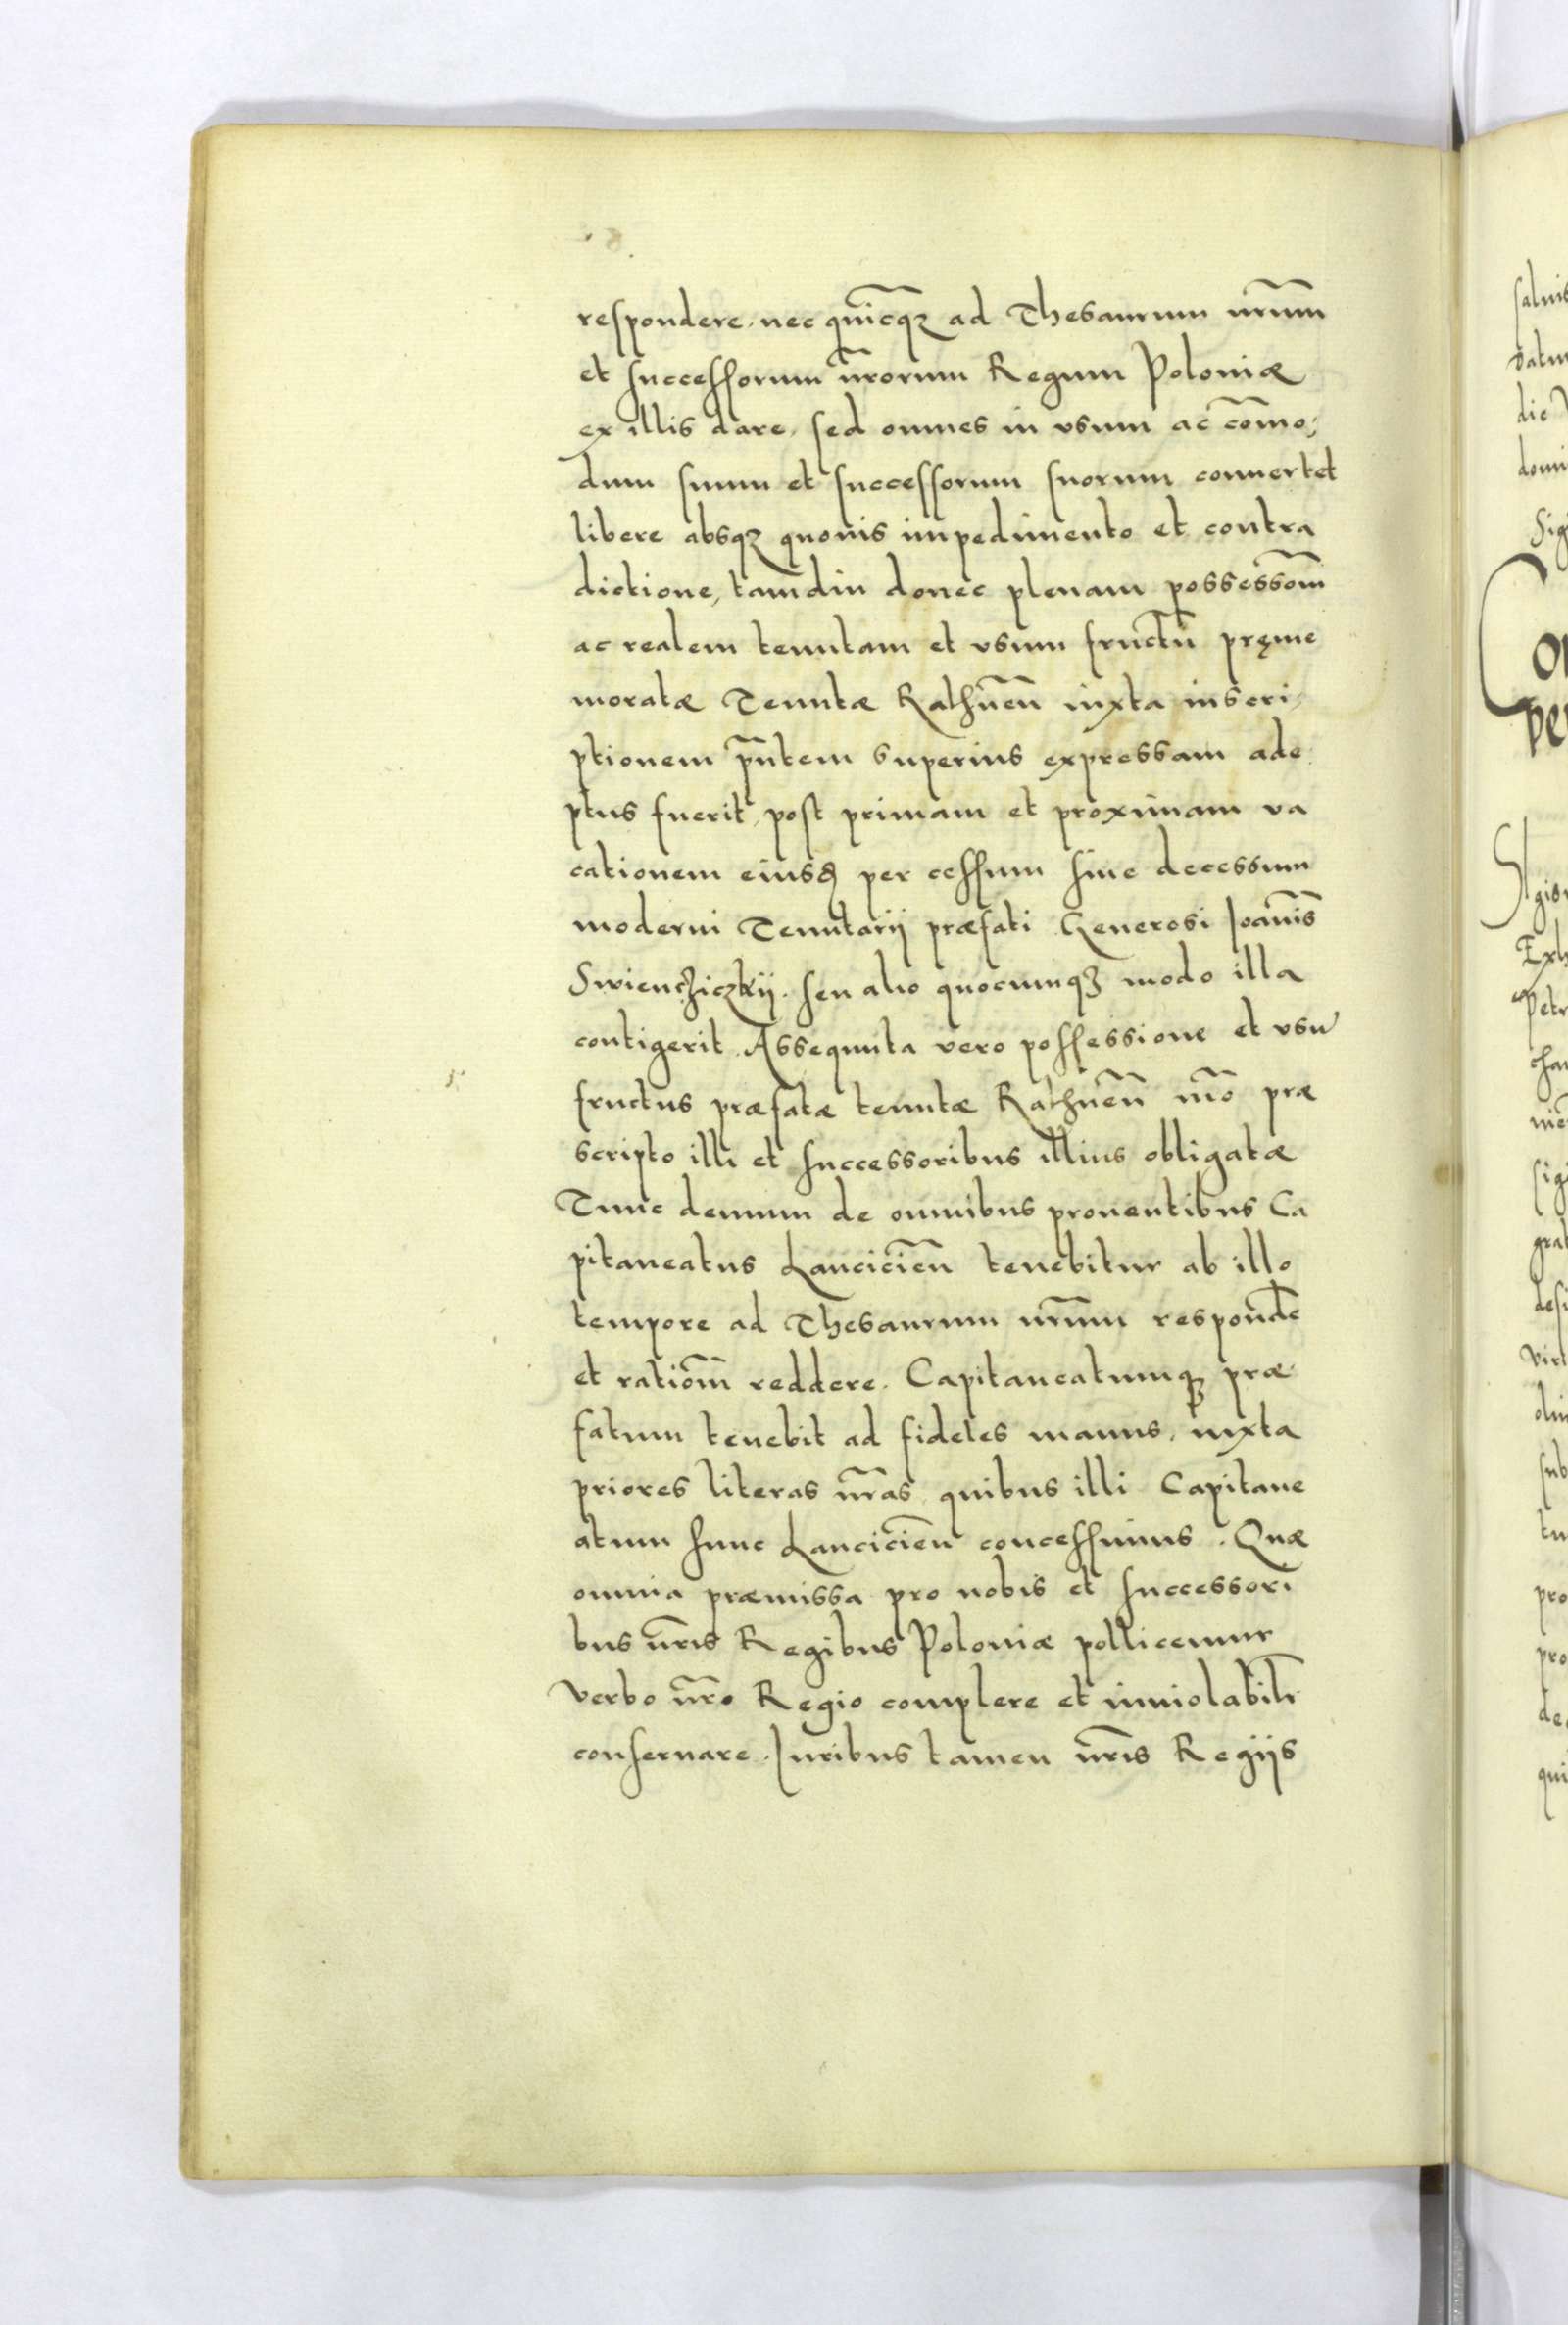 respondere. nec quicq̃ ad Thesaurum nr̃um
et successorum nr̃orum Regum Poloniæ
ex illis dare. sed omnes in vsum ac com̃o;
dum suum et successorum suorum conuertet
libere absqꝫ quouis impedimento et contra
dictione, tamdiu donec plenam possessiom̃
ac realem tenutam et vsum fructũ pręme
moratæ Tenutæ Rathneñ iuxta inscri,
ptionem pñtem superius expressam ade
ptus fuerit, post primam et proximam va
cationem eiusd per cessum siue decessum
moderni Tenutarij præfati Generosi Joañis
Swiencziczkij. seu alio quocumqꝫ modo illa
contigerit. Assequuta vero possessione et vsu
fructus præfatæ tenutæ Rathneñ mõ præ
scripto illi et successoribus illius obligatæ
Tunc demum de omnibus prouentibus Ca
pitaneatus Lancicieñ tenebitur ab illo
tempore ad Thesaurum nr̃um respondẽ
et ratiom̃ reddere. Capitaneatumqꝫ præ
fatum tenebit ad fideles manus, iuxta
priores literas nr̃as, quibus illi Capitane
atum hunc Lancicieñ concessimus. Quæ
omnia præmissa pro nobis et successori
bus nr̃is Regibus Poloniæ pollicemur
verbo nr̃o Regio complere et inuiolabilr̃
conseruare. Juribus tamen nr̃is Regijs